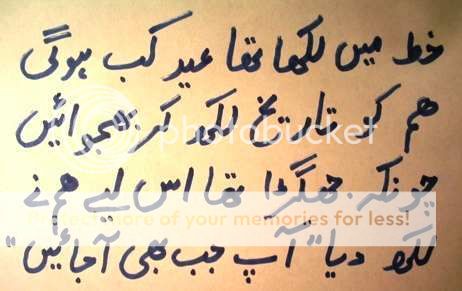 خط میں لکھا تھا عید کب ہوگی
ہم کو تاریخ لکھ کر بھجوائیں
photobucket
چونکہ جھگڑا تھا اس لیے ہم نے
Protect more of your memories for less!
لکھ دیا "آپ جب بھی آجائیں"